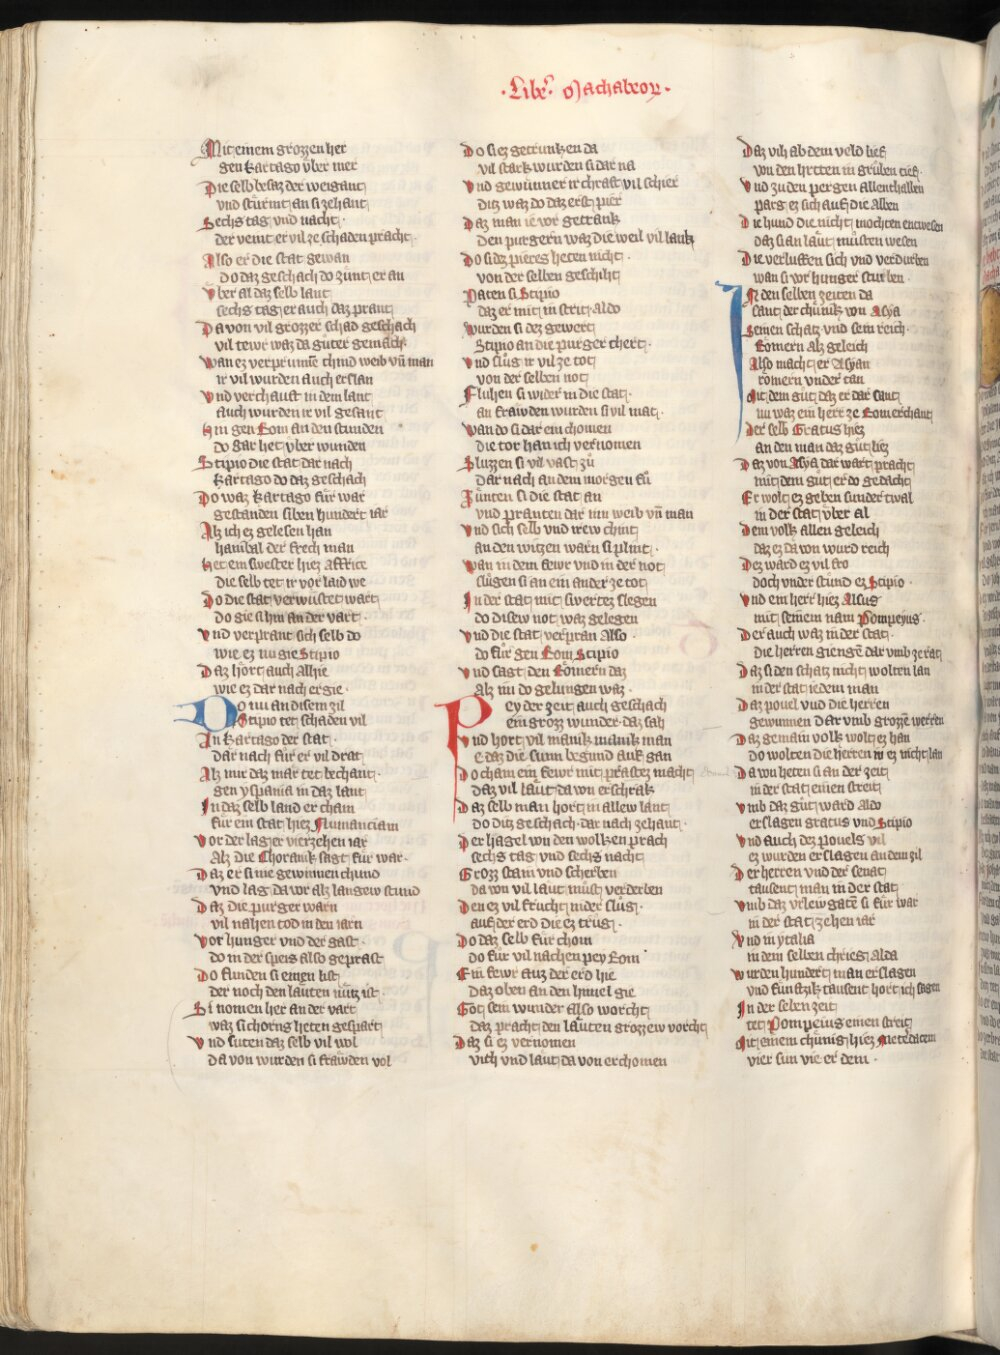 ·Libe᷒· Machabeoꝝ·
Mit einem grozzen her
gen Kartago vber mer
Die selb besaz der weigant
vnd sturmt an si zehant
Sechs tag vnd nacht·
der veint er vil ze schaden pracht·
Also er die stat gewan
do daz geschach do zunt er an
Vber al daz selb lant
sechs tag er auch daz prant
Da von vil grozzer schad geschach
vil tewr waz da guter gemach
Wan ez verprunnē chind weib vn̄ man
ir vil wurden auch erslan
Vnd verchauft in dem lant
auch wurden ir vil gesant
Hin gen Rom an den stunden
do gar het vber wunden
Stipio die stat dar nach
Kartago do daz geschach
Do waz Kartago fůr war
gestanden siben hundert iar
Alz ich ez gelesen han
hanibal der frech man
Het ein swester hiez Affrice
die selb tet ir vor laid we
Do die stat verwůstet wart
do gie si hin an der vart·
Vnd verprant sich selb do
wie ez nu gie Stipio
Daz hort auch alhie
wie ez dar nach ergie·
Do nu an disem zil
Stipio tet schaden vil
In Kartago der stat·
dar nach fůr er vil drat
Alz mir daz mār tet bechant·
gen yspania in daz lant
In daz selb land er cham
fůr ein stat hiez Numanciam
Vor der lag er vierzehen iar
Alz die Choranik sagt fůr war·
Daz er si nie gewinnen chund
vnd lag da vor alz langew stund
Daz die purger warn
vil nahen tod in den iarn
Vor hunger vnd der gast·
do in der speis also geprast
Do funden si einen list
der noch den lāuten nůtz ist·
Si nomen her an der vart
waz si chorns heten gespart
Vnd suten daz selb vil wol
da von wurden si frāwden vol
Do si ez getrunken da
vil stark wurden si dar na
Vnd gewunner ir chraft vil schier
ditz waz do daz erst pier
Daz man ie vor getrank
den purgern waz die weil vil lank
Do si dez pieres heten nicht·
von der selben geschiht
Paten si Stipio
daz er mit in strit· aldo
Wurden si dez gewert
Stipio an die purger chert·
Vnd slůg ir vil ze tot
von der selben not
Fluhen si wider in die stat·
an frāwden wurden si vil mat·
Wan do si dar ein chomen
die tor han ich vernomen
Sluzzen si vil vast zů
dar nach an dem morgen frů
Zunten si die stat an
vnd pranten dar inn weib vn̄ man
Vnd sich selb vnd irew chint
an den witzen warn si plint·
Wan in dem fewr vnd in der not
slůgen si an ein ander ze tot
In der stat mit swertez slegen
do disew not waz gelegen
Vnd die stat verpran also·
do fůr gen Rom Stipio
Vnd sagt den Romern daz
Alz im do gelungen waz·
Pey der zeit auch geschach
ein grozz wunder daz sah
Vnd hort vil manik manik man
e daz die sunn begund auf gan
Do cham ein fewr mit prastez macht
daz vil laut da von erschrak
Daz selb man hort in allew lant
do ditz geschach· dar nach zehant·
Der hagel von den wolken prach
sechs tag vnd sechs nacht
Grozz stain vnd scherben
da von vil laut můst verderben
Den ez vil frucht nider slůg·
auf der erd die ez trůg·
Do daz selb fůr chom
do fůr vil nachen pey Rom
Ein fewr auz der erd hie
daz oben an den himel gie
Got sein wunder also worcht
daz pracht den lāuten grozzew vorcht
Daz si ez vernomen
vich vnd laut da von erchomen
Daz vih ab dem veld lief
von den hirten in gruben tief·
Vnd zu den pergen allenthalben
parg ez sich auf die alben
Die hund die nicht mochten entwesen
daz si an laut můsten wesen
Die verluffen sich vnd verdurben
wan si vor hunger sturben·
In den selben zeiten da
sant der chunik von Asya
Seinen schatz vnd sein reich·
Romern alz geleich
Also macht er Asyan
romern vnder tan
Mit dem gut daz er dar sant
nu waz ein herr ze Rom erchant
Der selb Gratus hiez
an den man daz gut liez
Daz von Asya dar wart pracht
mit dem gut er do gedacht
Er wolt ez geben sunder twal
in der stat vber al
Dem volk allen geleich
daz ez da von wurd reich
Dez ward ez vil fro
doch vnder stund ez Stipio·
Vnd ein herr hiez Alsus
mit seinem nam Pompeyus·
Der auch waz in der stat·
die herren giengē dar vmb ze rat
Daz si den schatz nicht wolten lan
in der stat iedem man
Daz pouel vnd die herren
gewunnen dar vmb grozzē werren
Daz gemain volk wolt ez han
do wolten die herren in ez nicht lan
Da von heten si an der zeit
in der stat einen streit
Vmb daz gut ward aldo
erslagen gratus vnd Stipio
Vnd auch dez pouels vil
ez wurden erslagen an dem zil
Der herren vnd der senat
tausent man in der stat
Vmb daz vrlewg atē si fůr war
in der stat zehen iar
Vnd in ytalia
in dem selben chrieg alda
Wurden hundert man erslagen
vnd funfzik tausent hort ich sagen
In der selben zeit
tet Pompeius einen streit
Mit einem chunig hiez Metedacem
vier sun vie er dem·